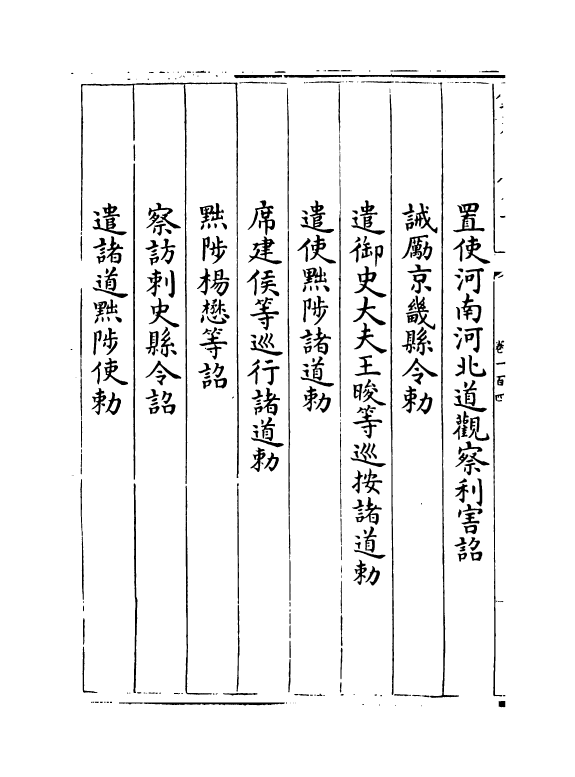 置使河南河北道觀察利害詔
誡勵京畿縣令勅
遣御史大夫王晙等巡按諸道勅
遣使黜陟諸道勅
席建侯等巡行諸道勅
黜陟楊懋等詔
察訪刺史縣令詔
遣諸道黜陟使勅
卷一百四